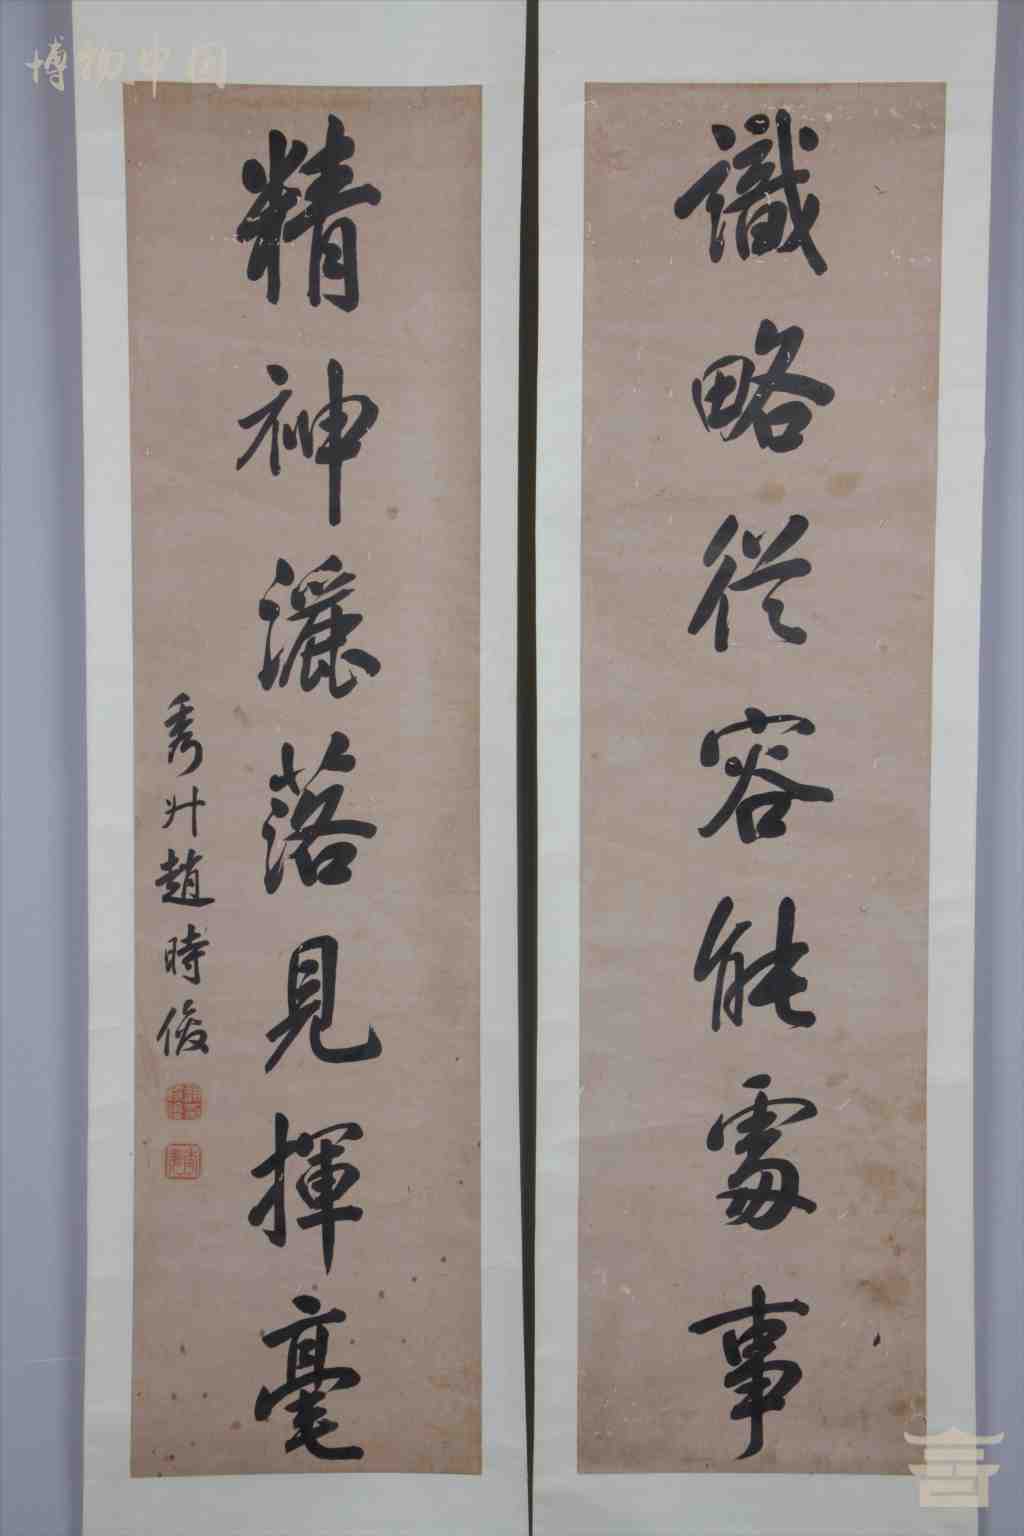 識略從容能處事
精神灑落見揮毫
秀州趙時俊
博物中国